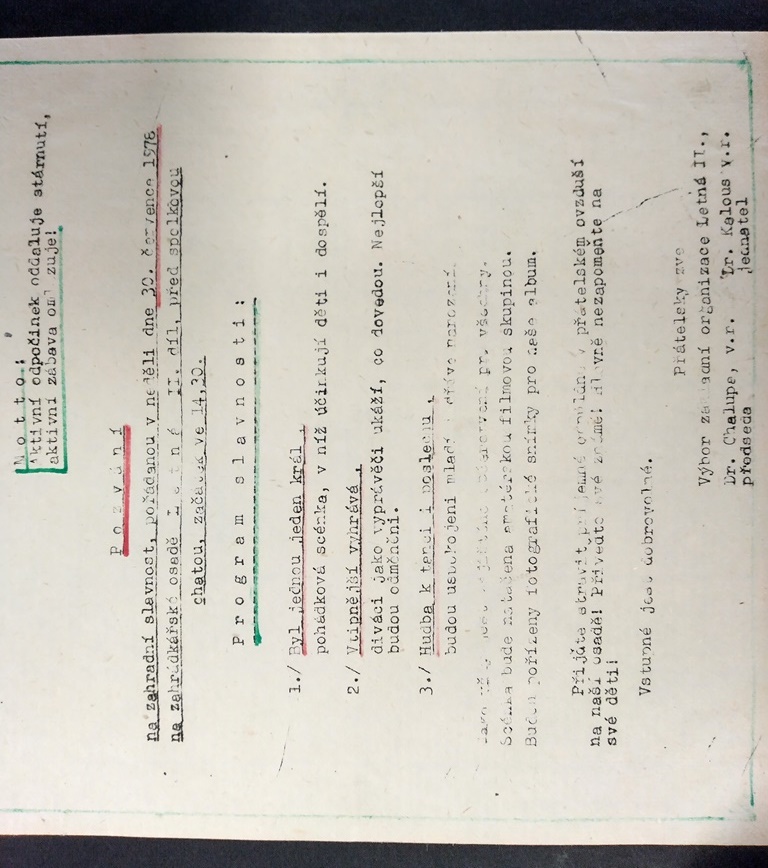 M o t t o :
Aktivní odpočinek oddaluje stárnutí,
aktivní zábava zuje!
P o z v á n í
na zahradní slavnost, pořádanou v neděli dne 30. července 1978
na zahrádkářské osadě L e t n á II. díl, před spolkovou
chatou, začátek ve 14,30.
P r o g r a m s l a v n o s t i :
1./ Byl jednou jeden král ,
pohádková scénka, v níž účinkují děti i dospělí.
2./ Vtipnější vyhrává ,
diváci jako vyprávěči ukáží, co dovedou. Nejlepší
budou odměněni.
3./ Hudba k tanci i poslechu ,
budou uspokojeni mladí i dříve narození.
všechny.
Scénka bude natáčena amatérskou filmovou skupinou.
Budou pořízeny fotografické snímky pro naše album.
Přijďte strávit příjemné v přátelském ovzduší
na naší osadě! Přiveďte své známé! Hlavně nezapomeňte na
své děti!
Vstupné jest dobrovolné.
Přátelsky zve
Výbor organizace Letná II.,
Dr. Chalupe, v.r. Dr. Kalous v.r.
předseda jednatel